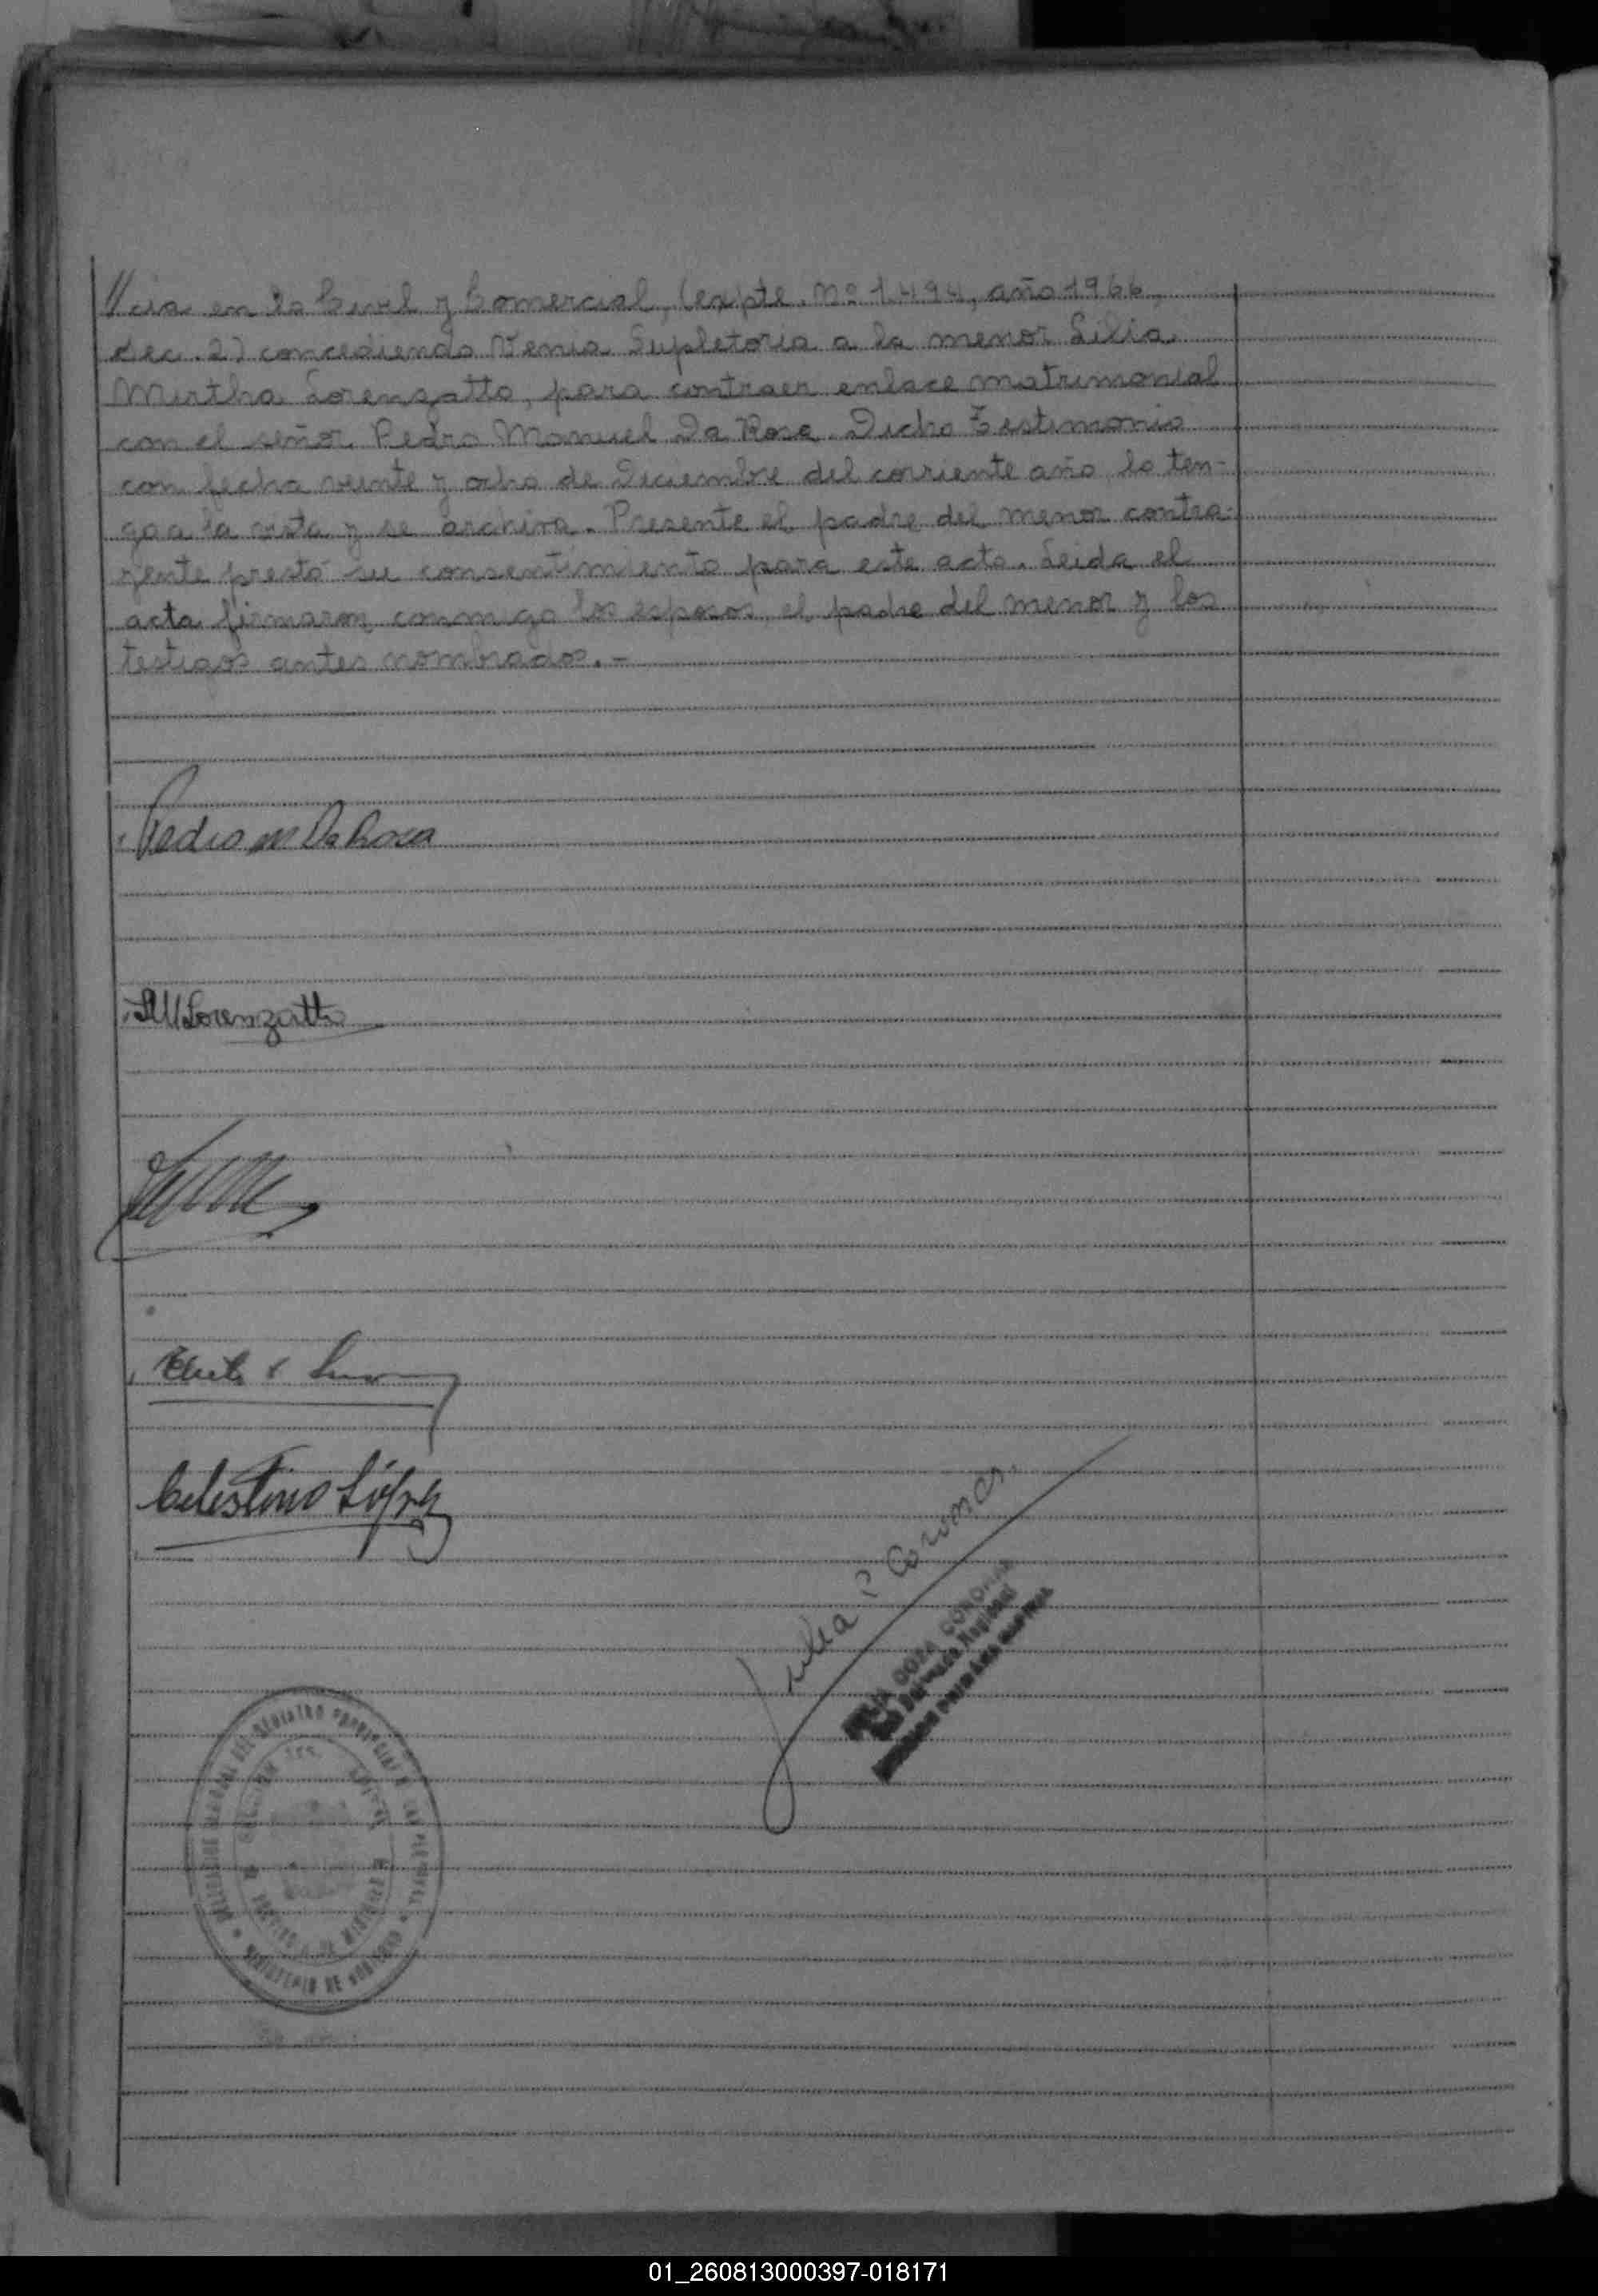 //cia en lo Civil y Comercial, (expte. Nº 1.494, año 1966,
sec. 2) concediendo Venia Supletoria a la menor Lilia
Mirtha Lorenzatto, para contraer enlace matrimonial
con el señor Pedro Manuel Da Rosa. Dicho Testimonio
con fecha veinte y ocho de Diciembre del corriente año, lo ten-
go a la vista y se archiva. Presente el padre del menor contra-
yente prestó su consentimiento para este acto. Leida el
acta firmaron conmigo los esposos, el padre del menor y los
testigos antes nombrados. -
Pedro M Da Rosa
Lorenzatto
Celestino López
Julia R Coromas
MINISTERIO DE GOBIERNO
01_260813000397-018171